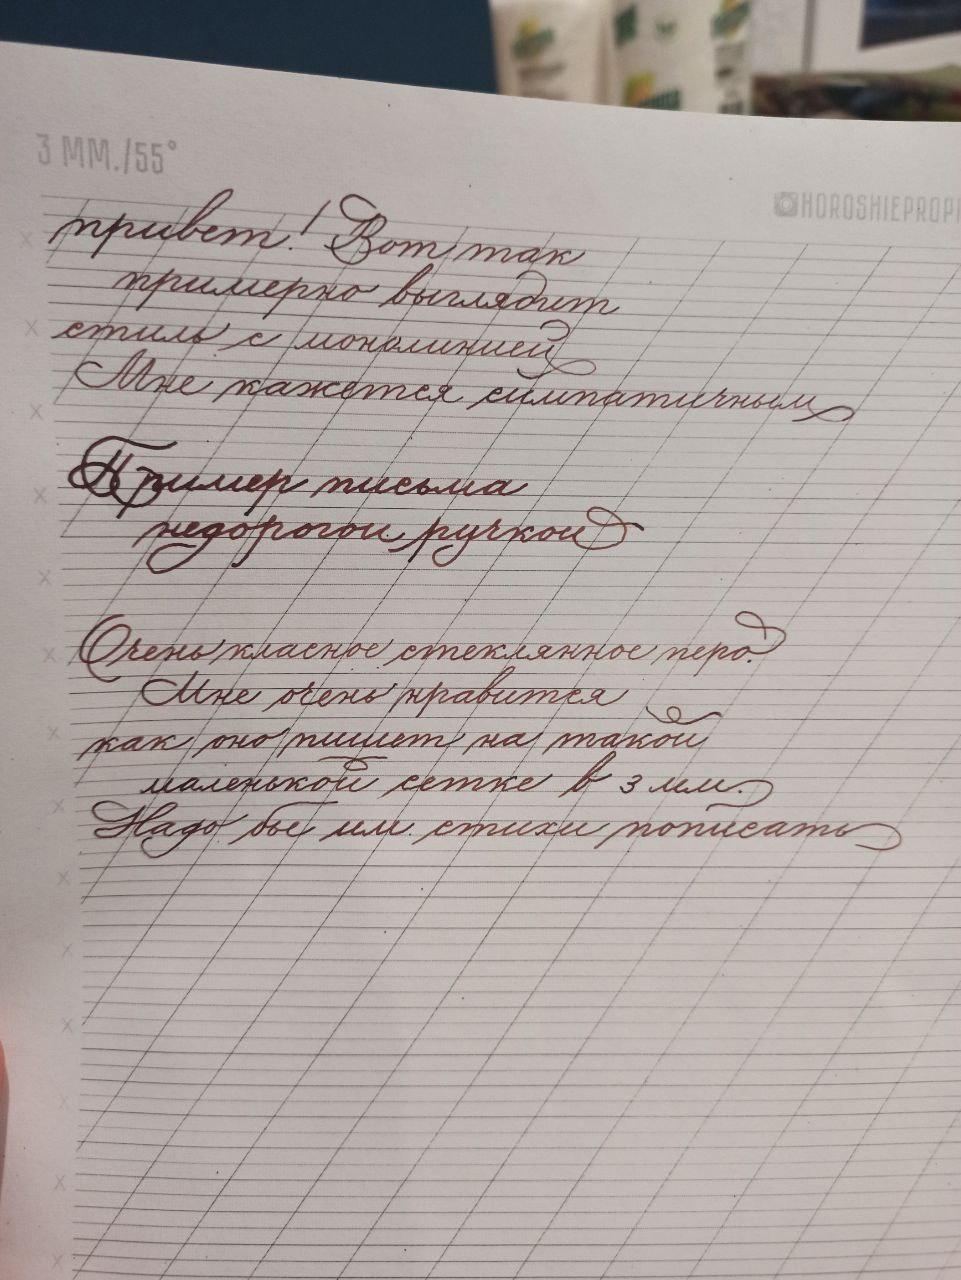 3 ММ./55°
HOROSHIEPROPI
привет! Вот так
примерно выглядит
стиль с монолинией
Мне кажется симпатичным
Пример письма
недорогой ручкой
Очень класное стеклянное перо.
Мне очень нравится
как оно пишет на такой
маленькой сетке в 3 мм.
Надо бы им стихи пописать